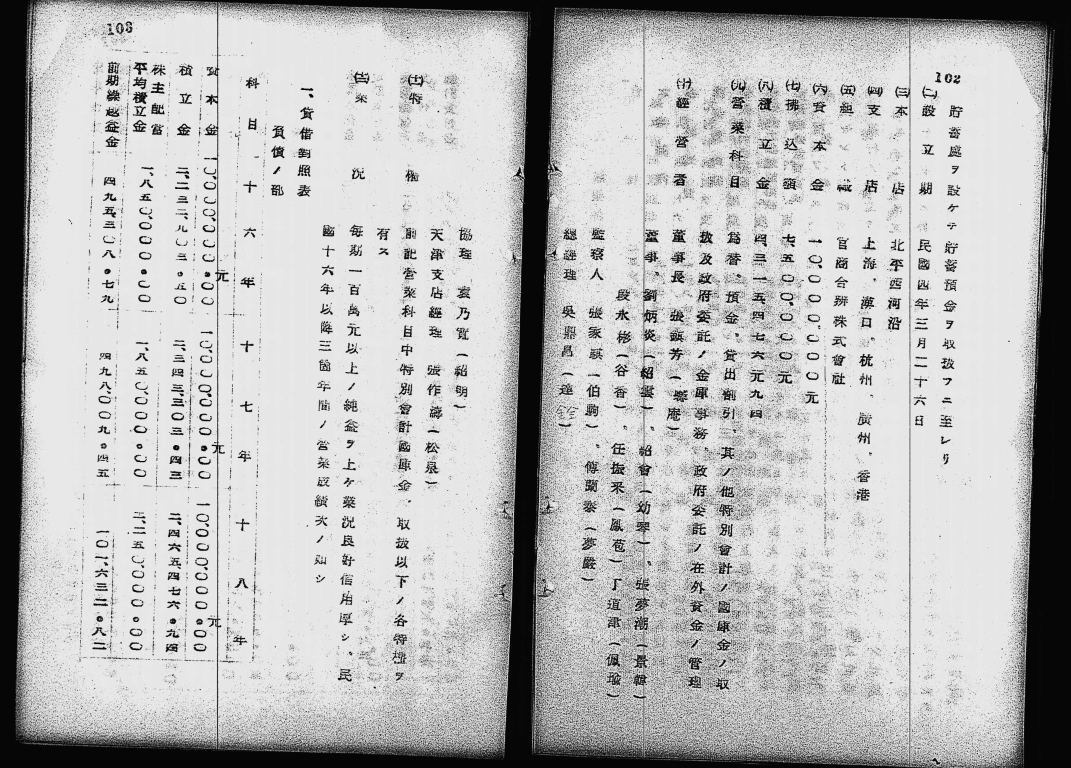 102
貯蓄處ヲ設ケテ貯蓄預金ヲ取扱フニ至レリ
(二)設立期 民國四年三月二十六日
(三)本店 北平西河沿
(四)支店 上海、漢口、杭州、廣州、香港
(五)組織 官商合辨株式會社
(六)資本金 一〇、〇〇〇、〇〇〇元
(七)拂込額 七、五〇〇、〇〇〇元
(八)積立金 四、三一五、四七六元九四
(九)營業科目 爲替、預金、貸出割引、其ノ他特別會計ノ國庫金ノ取
扱及政府委託ノ金庫事務、政府委託ノ在外資金ノ管理
(十)經營者 董事長 張 芳(庵)
董事、劉炳炎(紹雲)、紹會(幼琴)、張夢潮(景韓)
段永彬(谷香)、任振采(鳳苞)丁道津(佩瑜)
監察人 張家 (伯駒)、傅蘭泰(夢巖)
總經理 吳鼎昌(達 )
103
協理 袁乃寬(紹明)
天津支店經理 張作濤(松泉)
(十一)特權 前記營業科目中特別會計國庫金、取扱以下ノ各特權ヲ
有ス
(十二)業況 每期一百萬元以上ノ純益ヲ上ケ業況良好信用厚シ、民
國十六年以降三箇年間ノ營業成績次ノ如シ
一、貸借對照表
負債ノ部
科目 十六年 十七年 十八年
資本金 一〇、〇〇〇、〇〇〇・〇〇元 一〇、〇〇〇、〇〇〇・〇〇元 一〇、〇〇〇、〇〇〇・〇〇元
積立金 二、二三二、九〇三・五〇 二、三四三、三〇三・四三 二、四六五、四七六・九四
株主配當
平均積立金 一、八五〇、〇〇〇・〇〇 一、八五〇、〇〇〇・〇〇 二、二五〇、〇〇〇・〇〇
前期繰越益金 四九五、三〇八・七九 四九八、〇〇九・四五 一〇一、六三二・八二